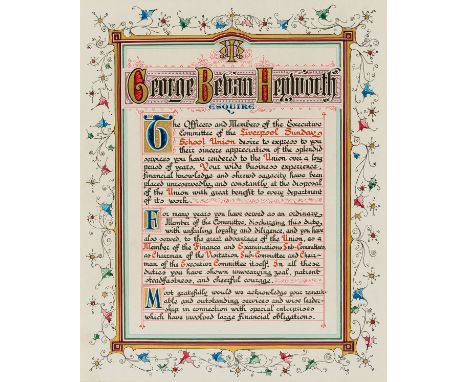 To
George Behan Hepworth
ESQUIRE
The Officers and Members of the Executive
Committee of the Liverpool Sunday
School Union desire to express to you
their sincere appreciation of the splendid
services you have rendered to the Union over a long
period of years. Your wide business experience,
financial knowledge and shrewd sagacity have been
placed unreservedly, and constantly at the disposal
of the Union with great benefit to every department
of its work.
For many years you have served as an ordinary
Member of the Committee, discharging this duty,
with unfailing loyalty and diligence, and you have
also served, to the great advantage of the Union, as a
Member of the Finance and Examinations Sub-Committees,
as Chairman of the Visitation Sub-Committee and Chair-
man of the Executive Committee itself. In all these
duties you have shown unwearying zeal, patient
steadfastness, and cheerful courage.
Most gratefully would we acknowledge your remark-
able and outstanding services and wise leader-
ship in connection with special enterprises
which have involved large financial obligations.